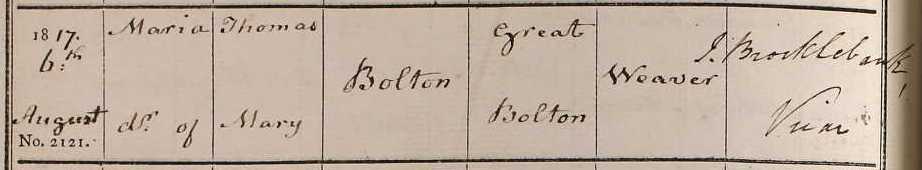 1817.
6.th
August
No. 2121.
Maria
dr. of
Thomas
Mary
Bolton
Great
Bolton
Weaver
J. Brocklebank,
Vicar